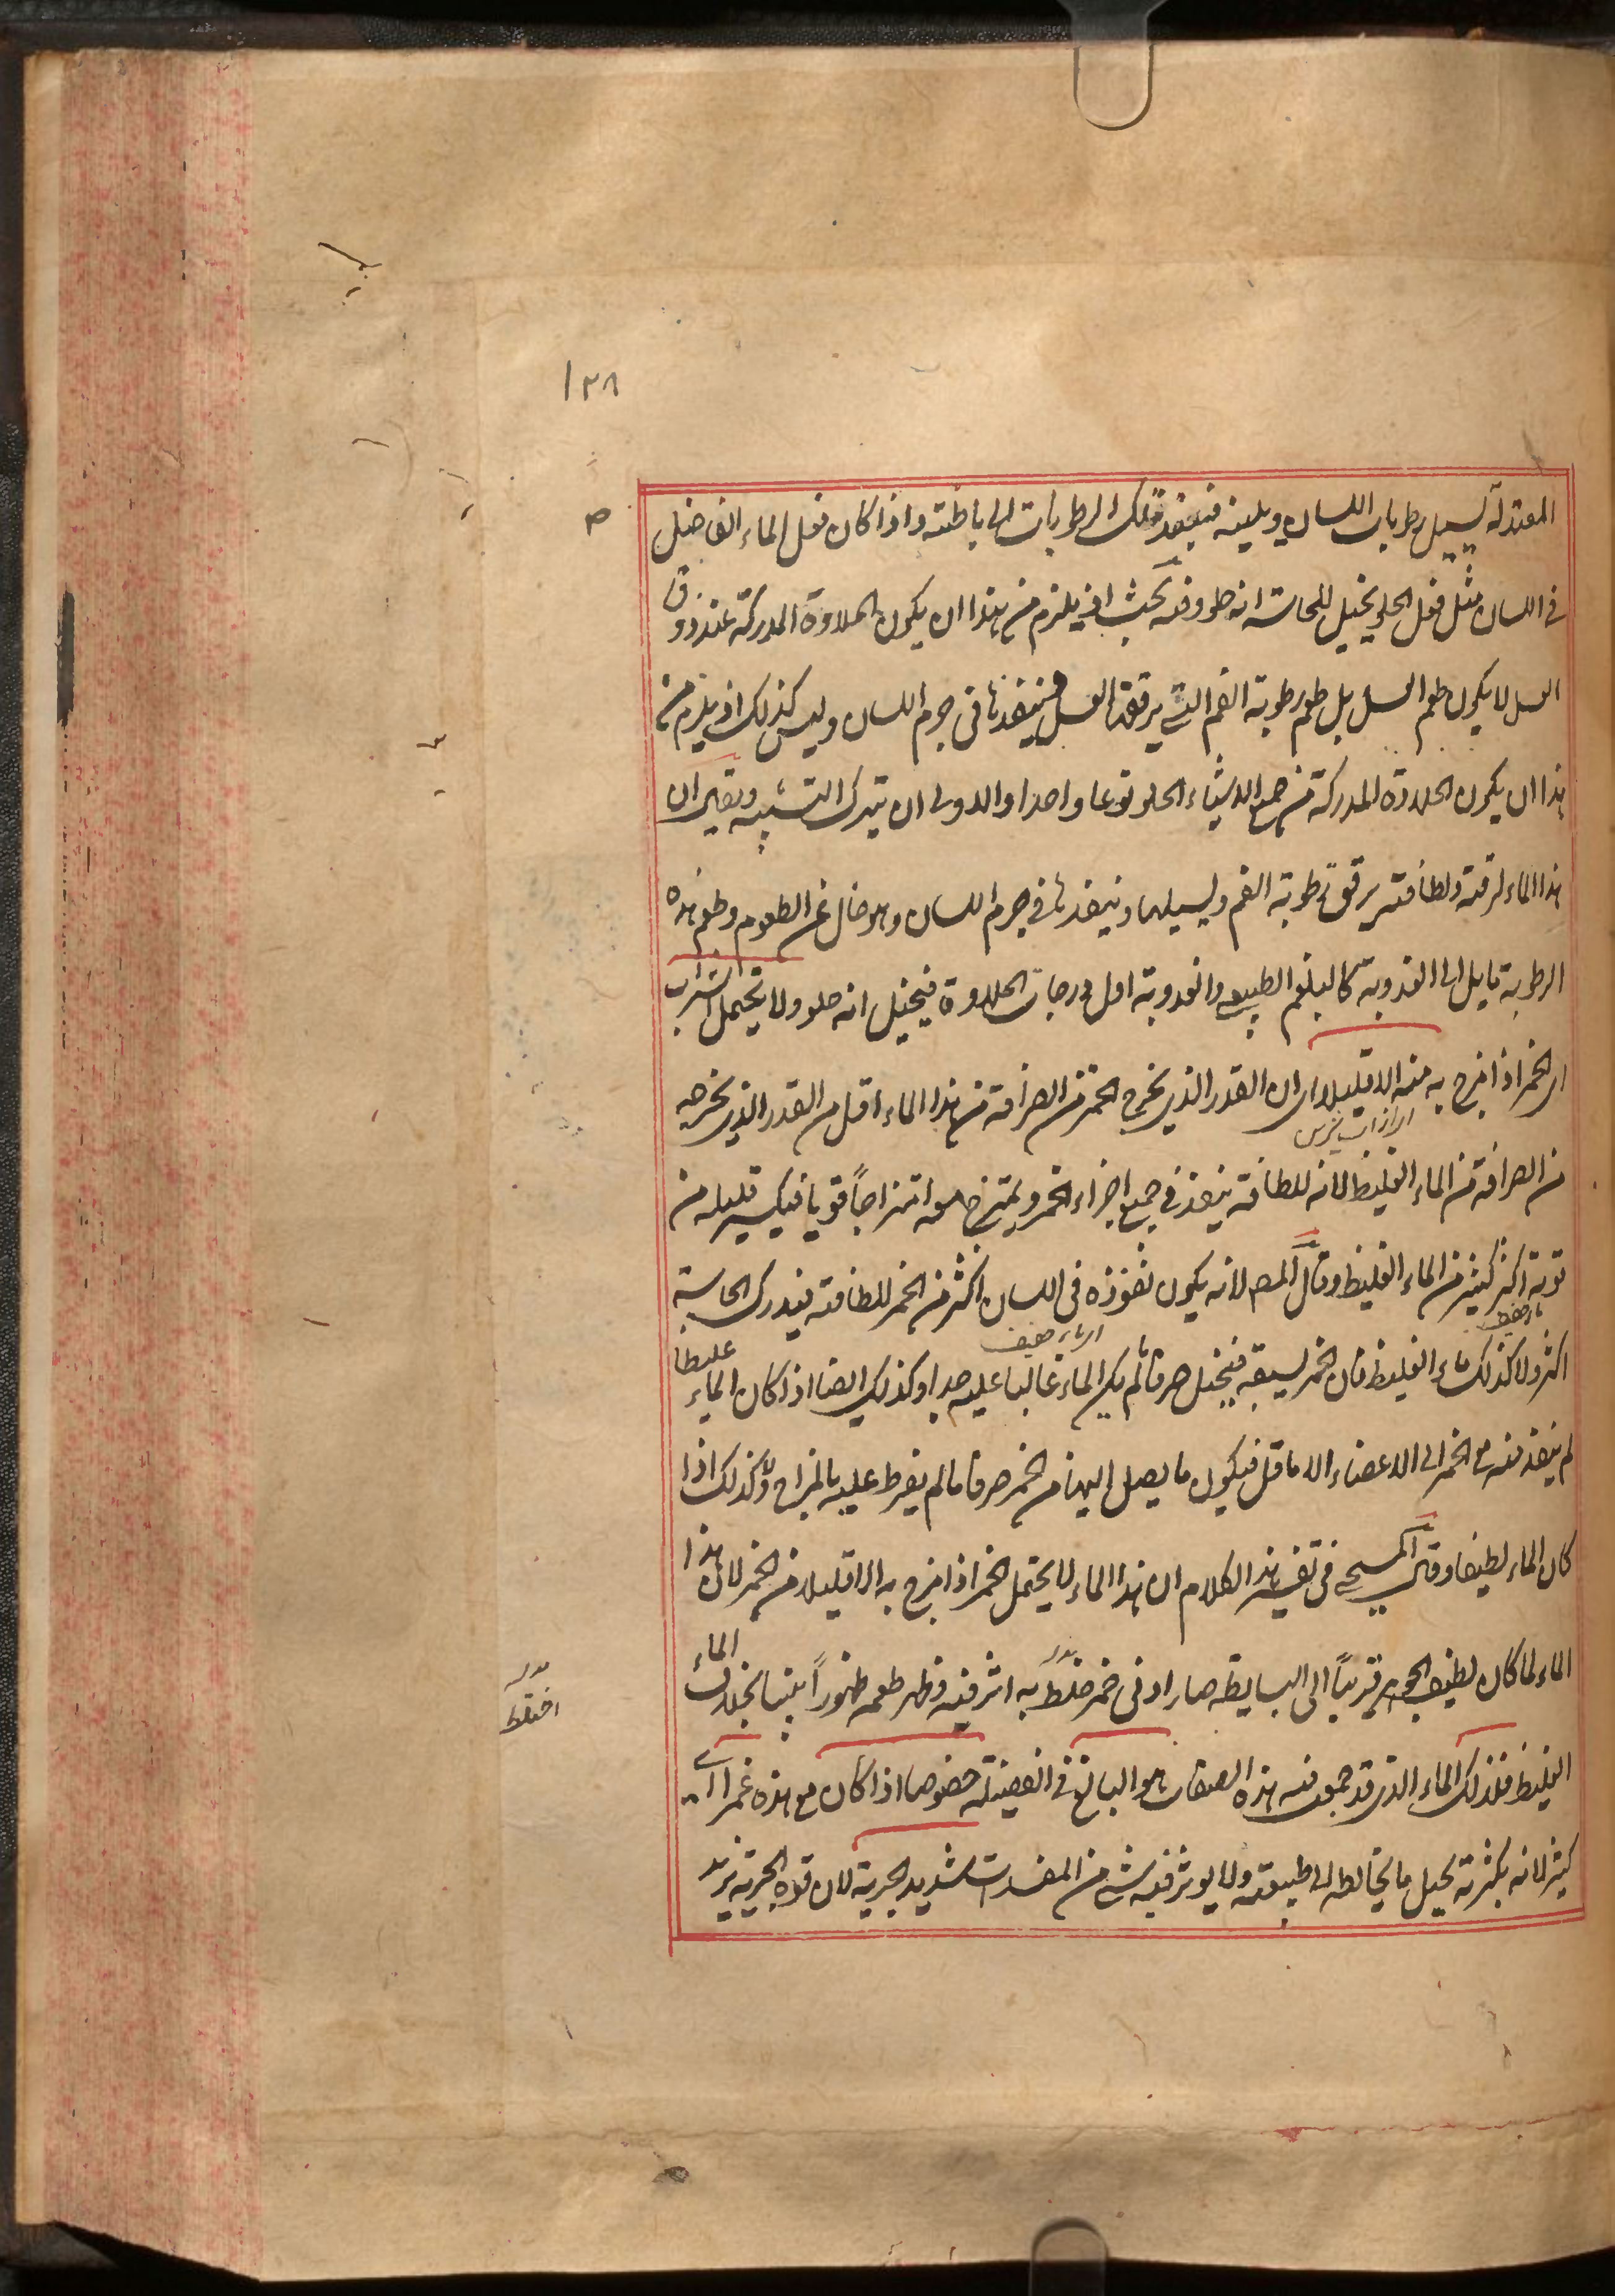 ١٢٨
المعتدلة يسيل رطوبات اللسان ويلينه فينفذ تلك الرطوبات الى باطنه واذا كان فعل الماء الفاضل
فى اللسان مثل فعل الحلو يخيل للحاسة انه حلو وفيه بحث اذ يلزم من هذا ان يكون الحلاوة المدركة عند ذوق
العسل لا يكون طعم العسل بل طعم رطوبة الفم التى يرققها العسل فينفذها فى جرم اللسان وليس كذلك اذ يلزم من
هذا ان يكون الحلاوة المدركة من جميع الاشياء الحلو نوعا واحدا والاولى ان يترك التشبيه ويقال ان
هذا الماء لرقته ولطافته يرقق رطوبة الفم ويسيلها وينفذها فى جرم اللسان وهو خال عن الطعوم وطعم هذه
الرطوبة مايل الى العذوبة كالبلغم الطبيعى والعذوبة اول درجات الحلاوة فيخيل انه حلو ولا يحتمل الشراب
اى الخمر اذا مزج به منه الا قليلا اى ان القدر الذى يخرج الخمر من الصرافة من هذا الماء اقل من القدر الذى يخرجه
من الصرافة من الماء الغليظ لانه للطافته ينفذ فى جميع اجزاء الخمر ويمتزج معه امتزاجاً قويا فيكسر قليله من
قوته اكثر من كثير من الماء الغليظ وقال المص لانه يكون نفوذه فى اللسان اكثر من الخمر للطافته فيدرك الحاسة
اكثر ولا كذلك ماء الغليظ فان الخمر يسبقه فيتخيل صرفا ما لم يكن الماء غالبا عليه جدا وكذلك ايضا اذا كان الماء غليظا
لم ينفذ منه مع الخمر الى الاعضاء الا ما قل فيكون ما يصل اليها من الخمر صرفا ما لم يفرط عليه بالمزاج ولا كذلك اذا
كان الماء لطيفا وقال المسيحى فى تفسير هذا الكلام ان هذا الماء لا يحتمل الخمر اذا مزج به الا قليلا من الخمر لان هذا
الماء لما كان لطيف الجوهر قريباً الى البساطة صار ادنى خمر خلط به اثر فيه وظهر طعمه ظهوراً بينا بخلاف الماء
اختلط
الغليظ فلذلك الماء الذى قد جمع فيه هذه الصفات هو البالغ فى الفضيلة خصوصا اذا كان مع هذه غمرا اى
كثير لانه بكثرته يحيل ما يخالطه الى طبيعته ولا يوثر فيه شى من المفسدات شديد الجرية لان قوة الجرية يزيد